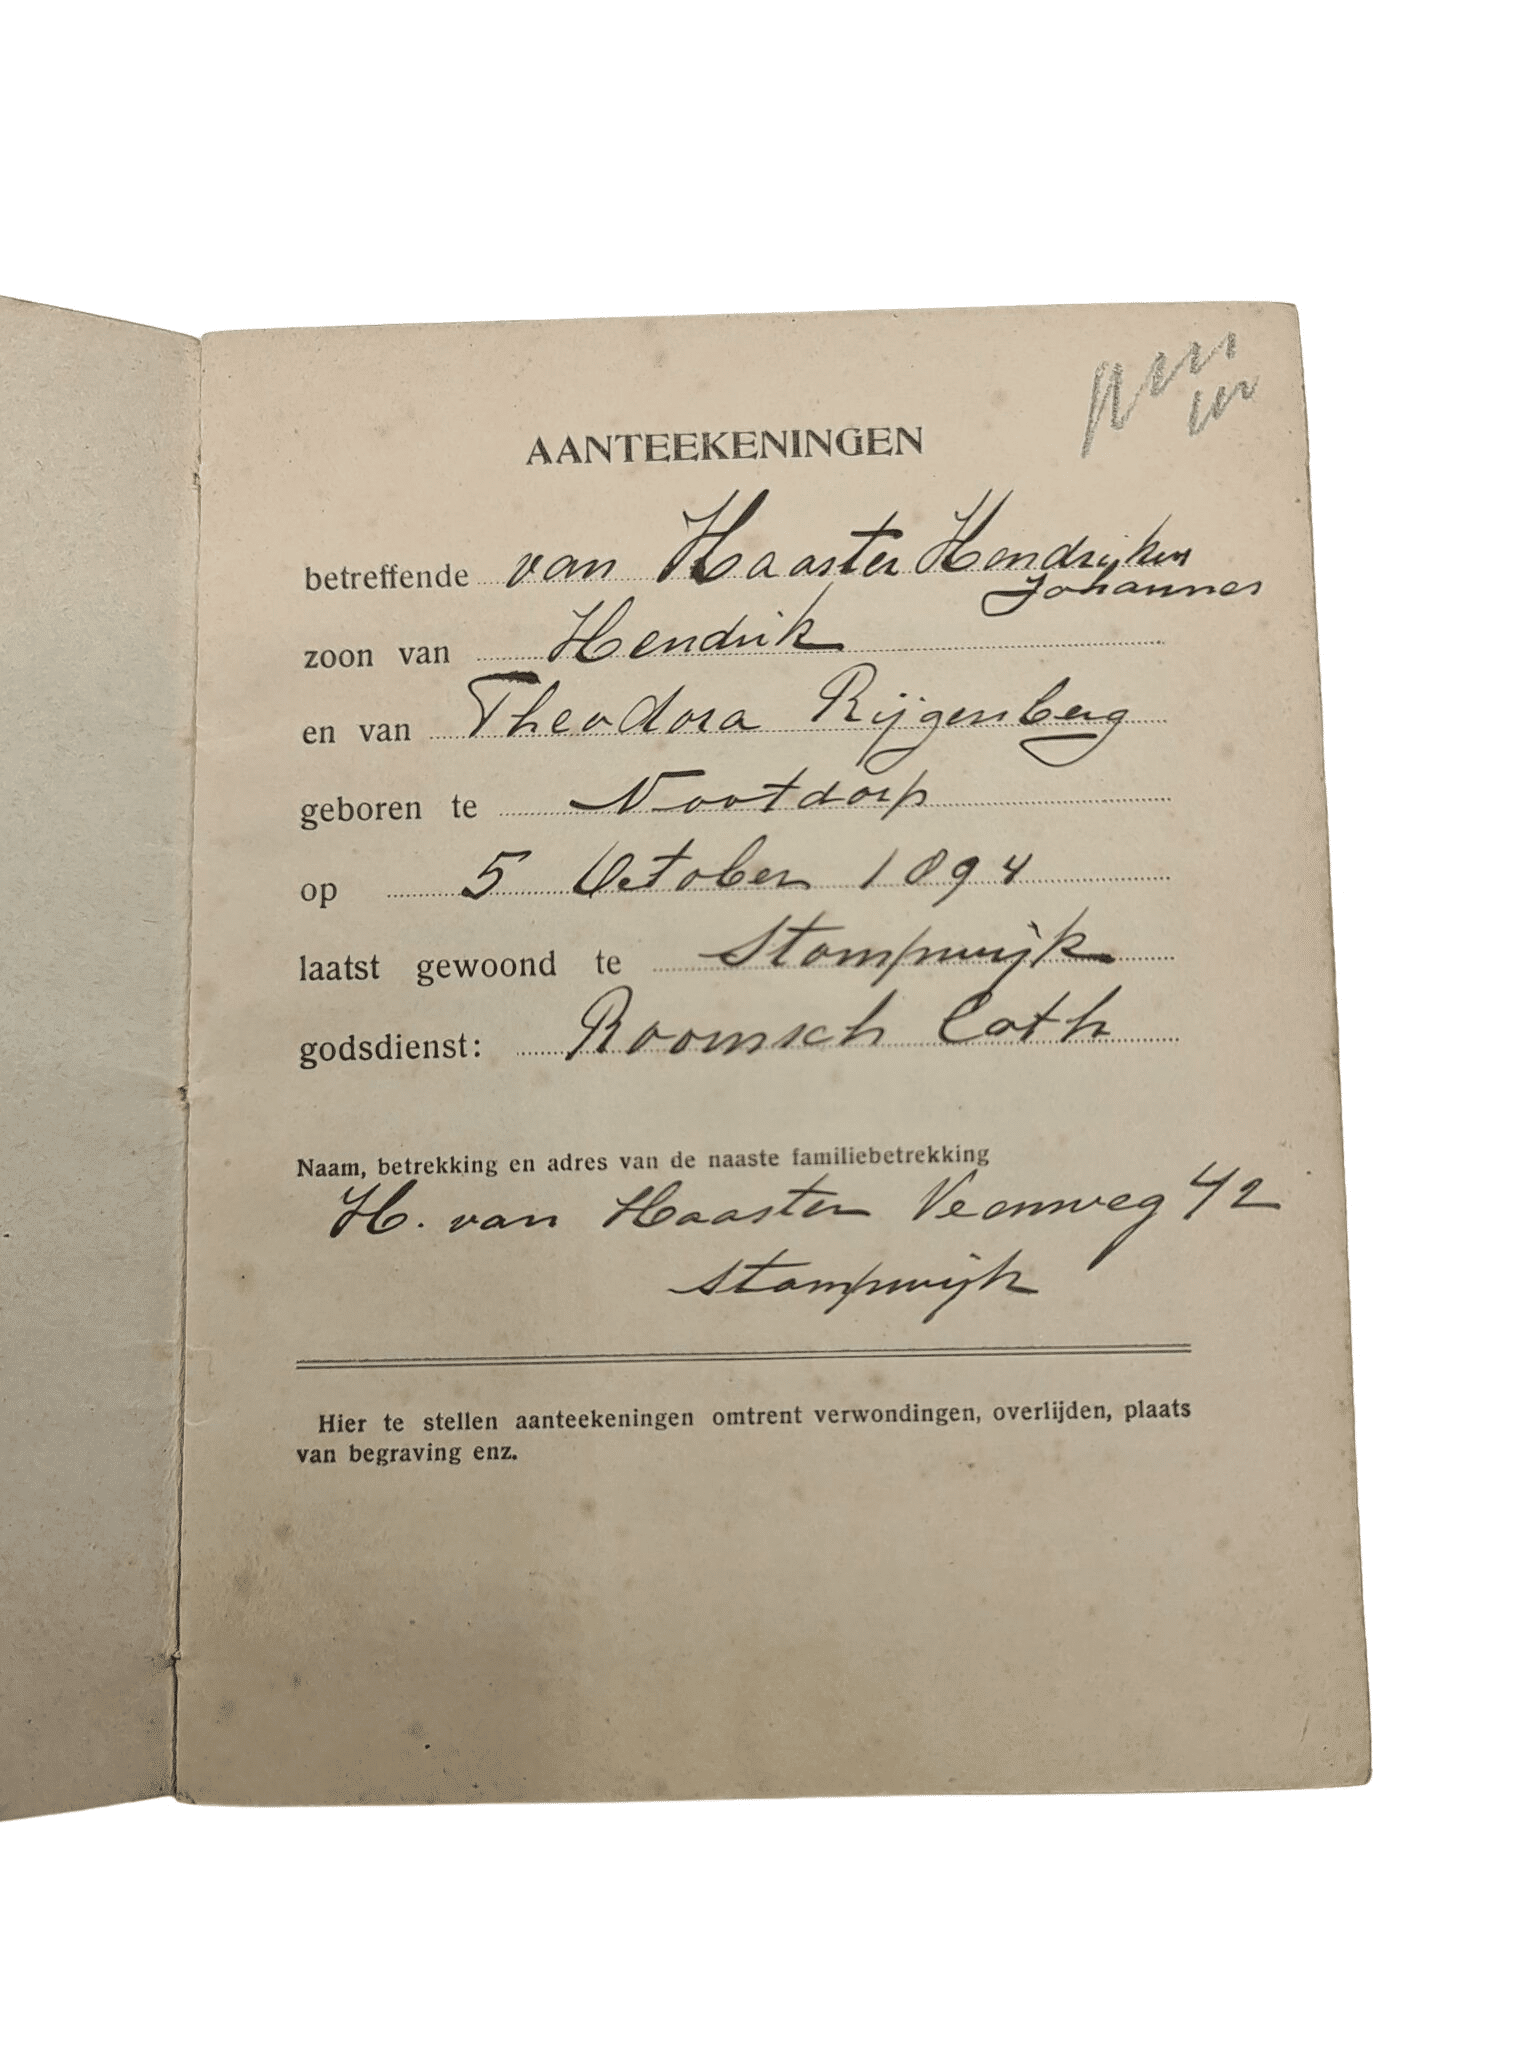 AANTEEKENINGEN
betreffende van Haaster Hendrikus
Johannes
zoon van Hendrik
en van Theodora Rijgersberg
geboren te Nootdorp
op 5 October 1894
laatst gewoond te Stompwijk
godsdienst: Roomsch Cath
Naam, betrekking en adres van de naaste familiebetrekking
H. van Haaster Veenweg 42
Stompwijk
Hier te stellen aanteekeningen omtrent verwondingen, overlijden, plaats
van begraving enz.